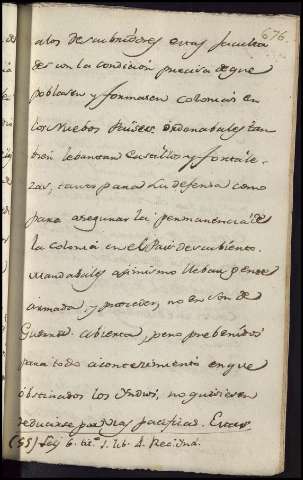 676.
a los descubridores estas faculta
des con la condicion precisa de que
poblasen y formasen colonias en
los Nuebos Paises. Ordenabales tan
bien lebantar Castillos y fortale-
zas, tanto para su defensa como
para asegurar la permanencia de
la colonia en el Pais descubierto.
Mandabales asimismo llebar gente
armada, y proceder, no en son de
Guerra abierta, pero prebenidos
para todo acontecimiento en que
obstinados los Yndios, no quisiesen
reducirse por vias pacificas. Estas
(55) Ley 6. tit. 1. lib. 4. Recind.